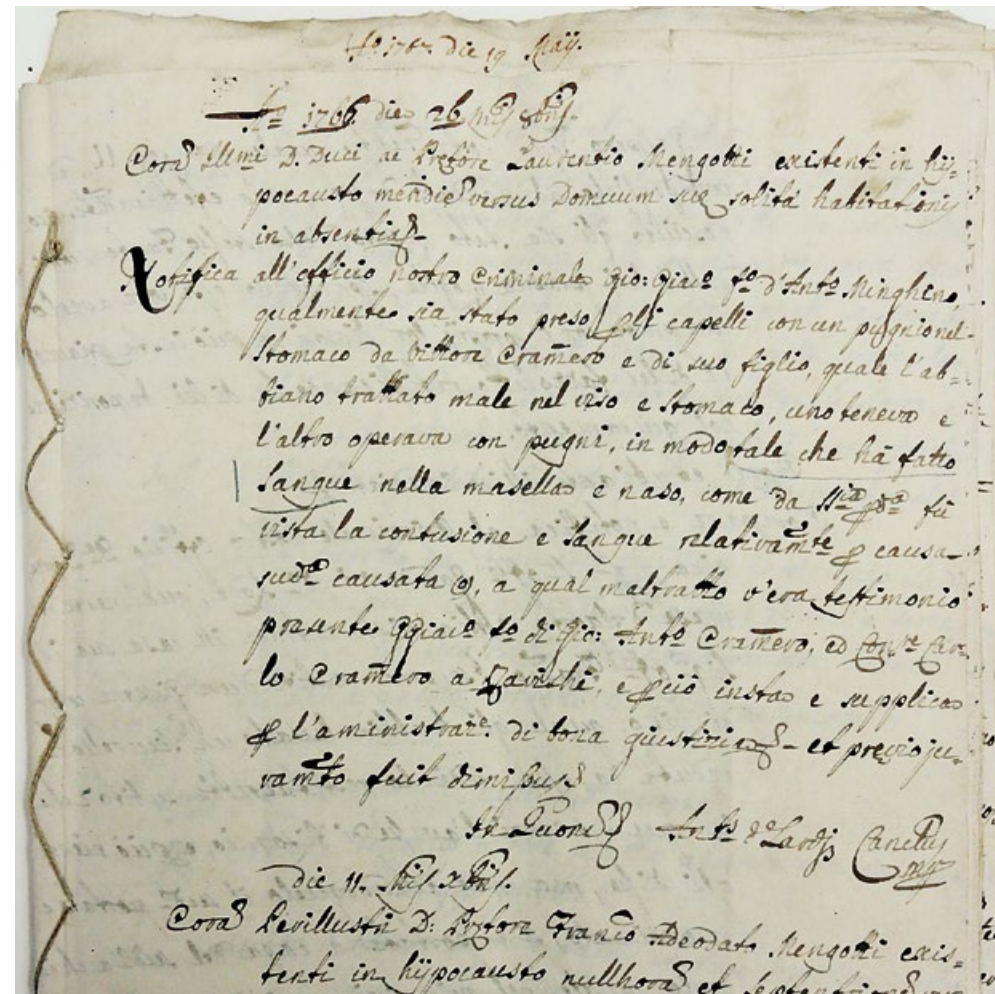 Aº 1767 die 19 Maij.
Aº 1766. die 26 mis 8bris.
Corā Illmi D. Duci ac Pretore Laurentio Mengotti existenti in hij=
pocausto meridiē versus Domuum sue solita habitationis
in absentia
Notifica all'officio nostro Criminale Gio: Giacº fº d'Antº Minghino,
qualmente sia stato preso p li capelli con un pugnio nel
Stomaco da Vittore Cramero e di suo figlio, quale l'ab=
biano trattato male nel viso e Stomaco, uno teneva e
l'altro operava con pugni, in modo tale che hà fatto
Sangue nella masella e naso, come da fù
vista la contusione e Sangue relativamte p causa
sudª causata, a qual maltratto v'era testimonio
presente Ggiacº fº di Gio: Antº Cramero, ed Car=
lo Cramero a, e pciò insta e supplica
p l'aministraze. di bona giustizia - et previo ju=
ramto fuit dimissus
Antˢ de Lardj Cancellus
mp
die 11. mis Xbris.
Corā Perillustri D: Pretore Franco Adeodato Mengotti exis=
tenti in hijpocausto nullhora et Septentrione